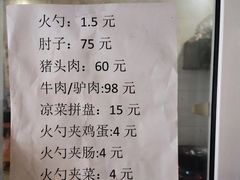 火勺：1.5 元
肘子：75 元
猪头肉：60 元
牛肉/驴肉:98 元
凉菜拼盘：15 元
火勺夹鸡蛋:4 元
火勺夹肠:4 元
火勺夹菜：4 元